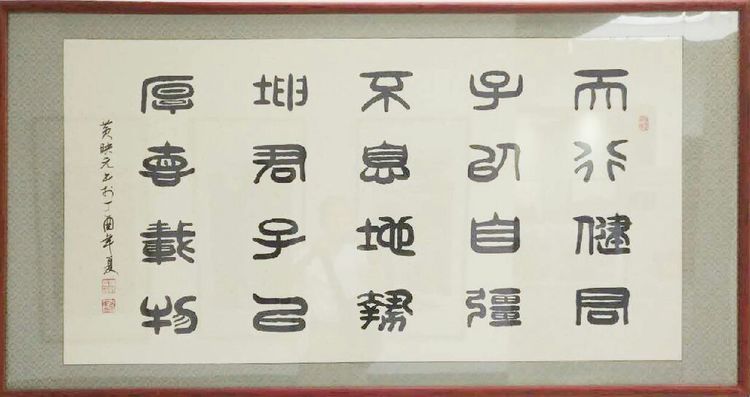 天行健君
子以自彊
不息地勢
坤君子以
厚悳載物
黄映元书於丁酉年夏